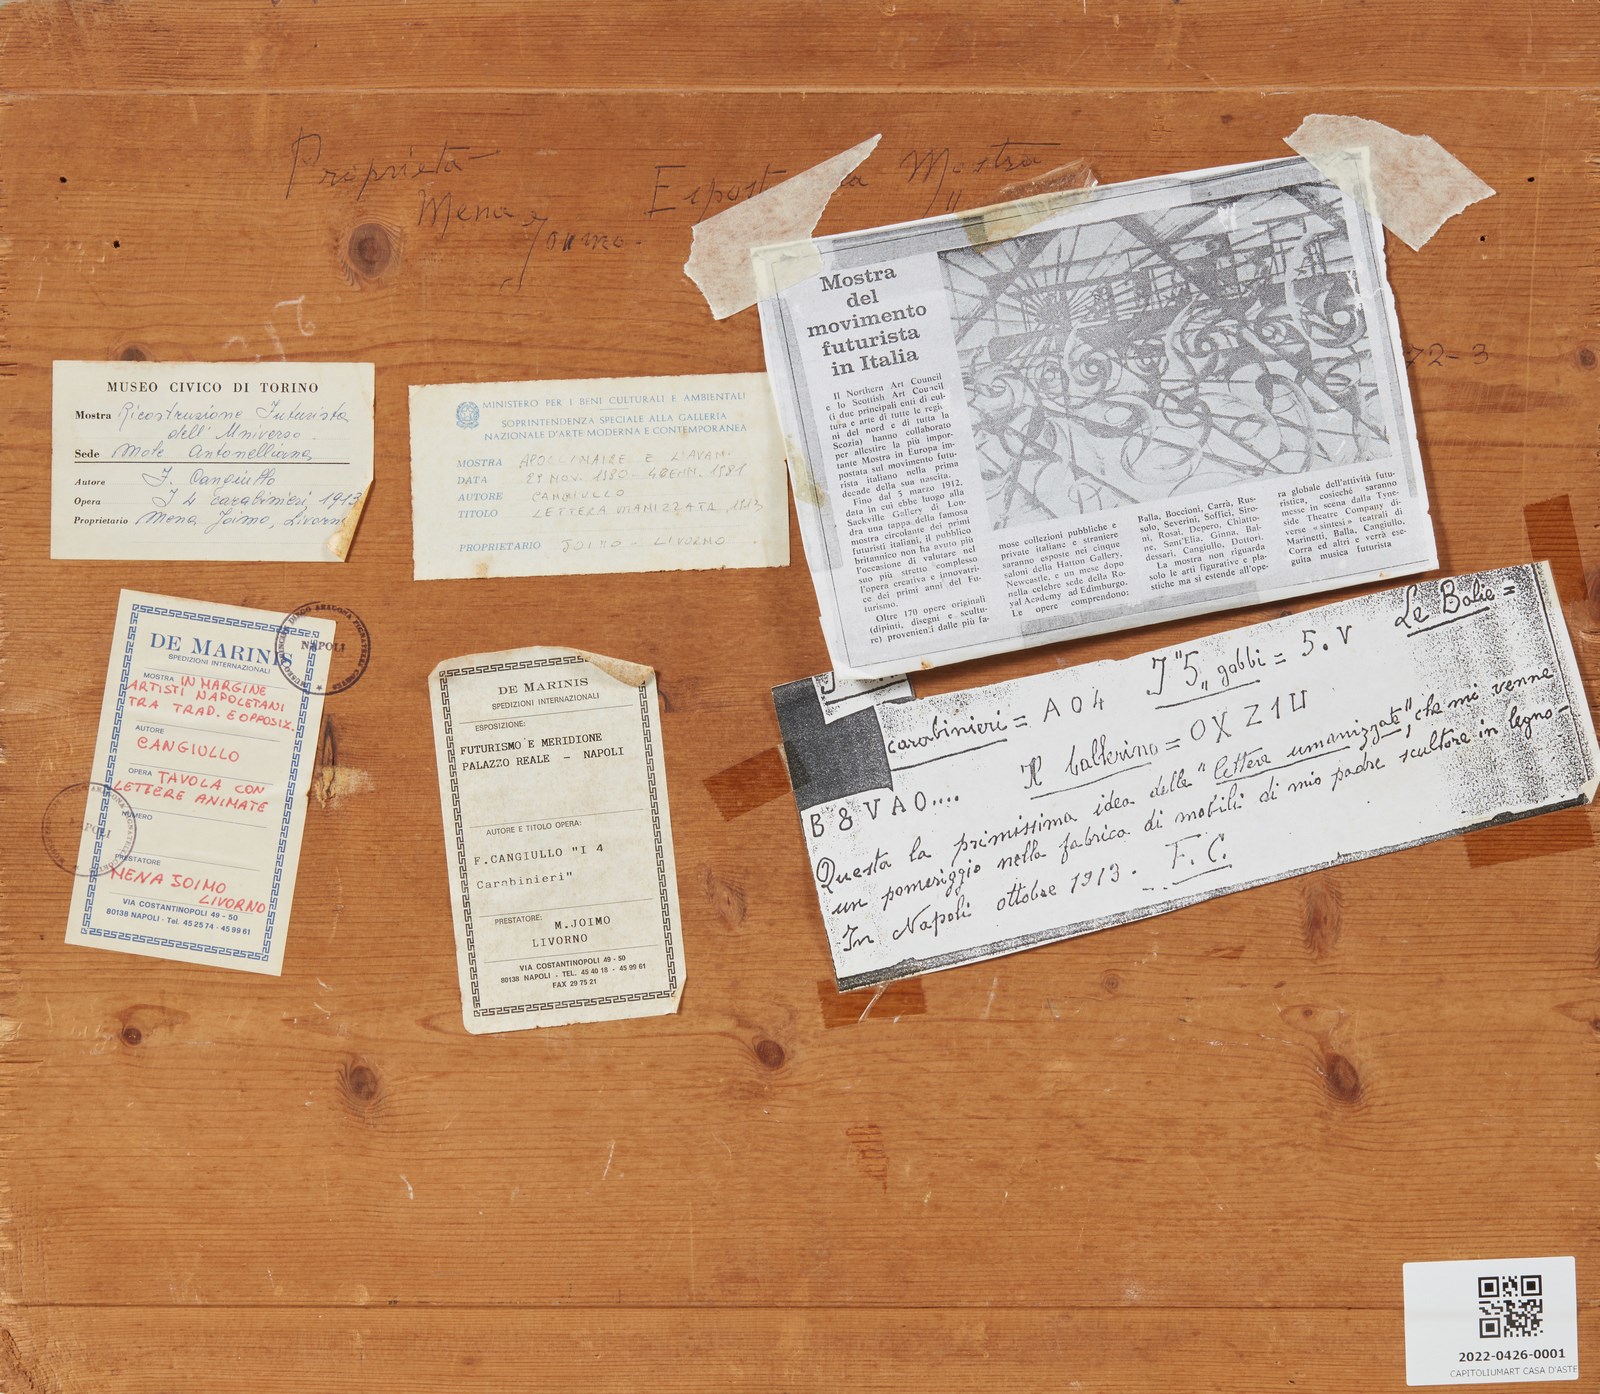 Proprietà
Mena Joimo.
Mostra
72-3
MUSEO CIVICO DI TORINO
Mostra Ricostruzione Futurista
dell'Universo.
Sede Mole Antonelliana
Autore F. Cangiullo
Opera I 4 carabinieri, 1913
Proprietario Mena Joimo, Livorno
MINISTERO PER I BENI CULTURALI E AMBIENTALI
SOPRINTENDENZA SPECIALE ALLA GALLERIA
NAZIONALE D'ARTE MODERNA E CONTEMPORANEA
MOSTRA APOLLINAIRE E L'AVAN.
DATA NOV. 1980 - 4 GENN. 1981
AUTORE CANGIULLO
TITOLO LETTERA UMANIZZATA, 1913
PROPRIETARIO JOIMO - LIVORNO
Mostra
del
movimento
futurista
in Italia
Il Northern Art Council
e lo Scottish Art Council
(i due principali enti di cul-
tura e arte di tutte le regli
ni del nord e di tutta la
Scozia) hanno collaborato
per allestire la più impor-
tante Mostra in Europa im-
postata sul movimento futu-
rista italiano nella prima
decade della sua nascita.
Fino dal 5 marzo 1912,
data in cui ebbe luogo alla
Sackville Gallery di Lon-
dra una tappa della famosa
mostra circolante dei primi
futuristi italiani, il pubblico
britannico non ha avuto più
l'occasione di valutare nel
suo più stretto complesso
l'opera creativa e innovatri-
ce dei primi anni del Fu-
turismo.
Oltre 170 opere originali
(dipinti, disegni e scultu-
re) provenienti dalle più fa-
mose collezioni pubbliche e
private italiane e straniere
saranno esposte nei cinque
saloni della Hatton Gallery,
Newcastle, e un mese dopo
nella celebre sede della Ro-
yal Academy ad Edimburgo.
Le opere comprendono:
Balla, Boccioni, Carrà, Rus-
solo, Severini, Soffici, Siro-
ni, Rosai, Depero, Chiatto-
ne, Sant'Elia, Ginna, Bal-
dessari, Cangiullo, Dottori.
La mostra non riguarda
solo le arti figurative e pla-
stiche ma si estende all'ope-
ra globale dell'attività futu-
ristica, cosicché saranno
messe in scena dalla Tyne-
side Theatre Company di-
verse « sintesi » teatrali di
Marinetti, Balla, Cangiullo,
Corra ed altri e verrà ese-
guita musica futurista
carabinieri = A04 I "5" gobbi = 5.V Le Balie =
B8VAO.... Il ballerino = OXZ1U
Questa la primissima idea delle "lettere umanizzate", che mi venne
un pomeriggio nella fabrica di mobili di mio padre scultore in legno -
In Napoli ottobre 1913. F. C.
DE MARINIS
SPEDIZIONI INTERNAZIONALI
MOSTRA IN MARGINE
ARTISTI NAPOLETANI
TRA TRAD. E OPPOSIZ.
AUTORE
CANGIULLO
OPERA TAVOLA CON
LETTERE ANIMATE
NUMERO
PRESTATORE
MENA JOIMO
LIVORNO
VIA COSTANTINOPOLI 49 - 50
80138 NAPOLI - Tel. 45 25 74 - 45 99 61
NAPOLI
DE MARINIS
SPEDIZIONI INTERNAZIONALI
ESPOSIZIONE:
FUTURISMO E MERIDIONE
PALAZZO REALE - NAPOLI
AUTORE E TITOLO OPERA:
F.CANGIULLO "I 4
Carabinieri"
PRESTATORE:
M.JOIMO
LIVORNO
VIA COSTANTINOPOLI 49 - 50
80138 NAPOLI - TEL. 45 40 18 - 45 99 61
FAX 29 75 21
2022-0426-0001
CAPITOLIUMART CASA D'ASTE